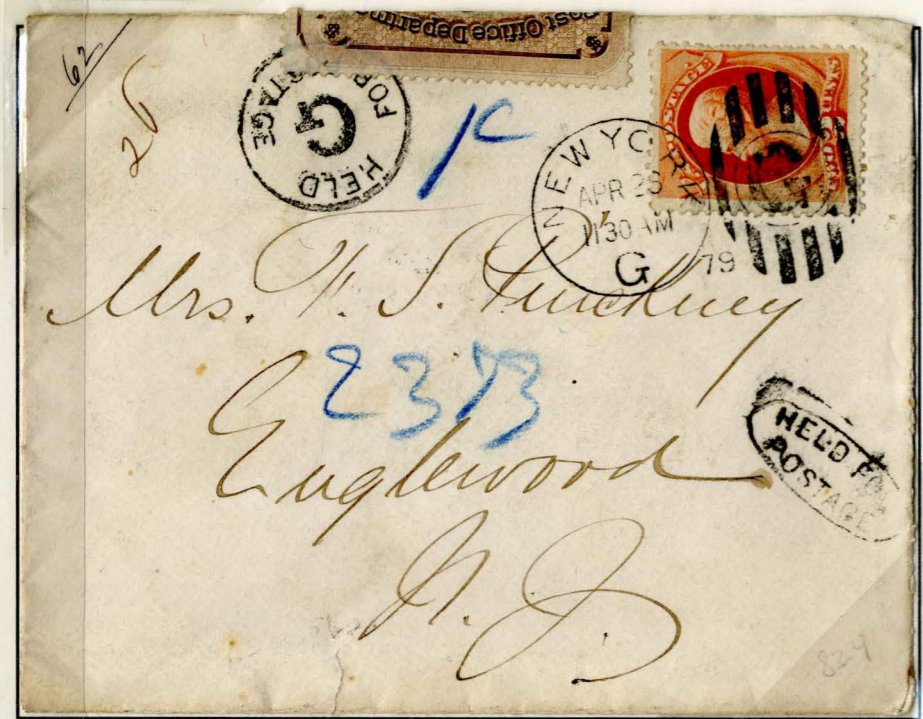 Post Office Departm
62
26
HELD FOR POSTAGE
G
NEW YORK
APR 25
1130 AM
G
79
Mrs. F. S. Pinckney
2373
Englewood
N. J.
HELD FO
POSTAGE
824